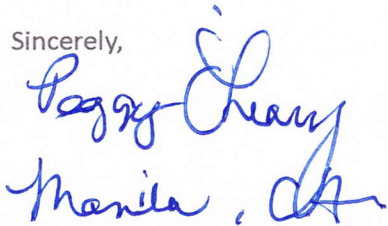 Sincerely,
Peggy O'Leary
Manila, IA